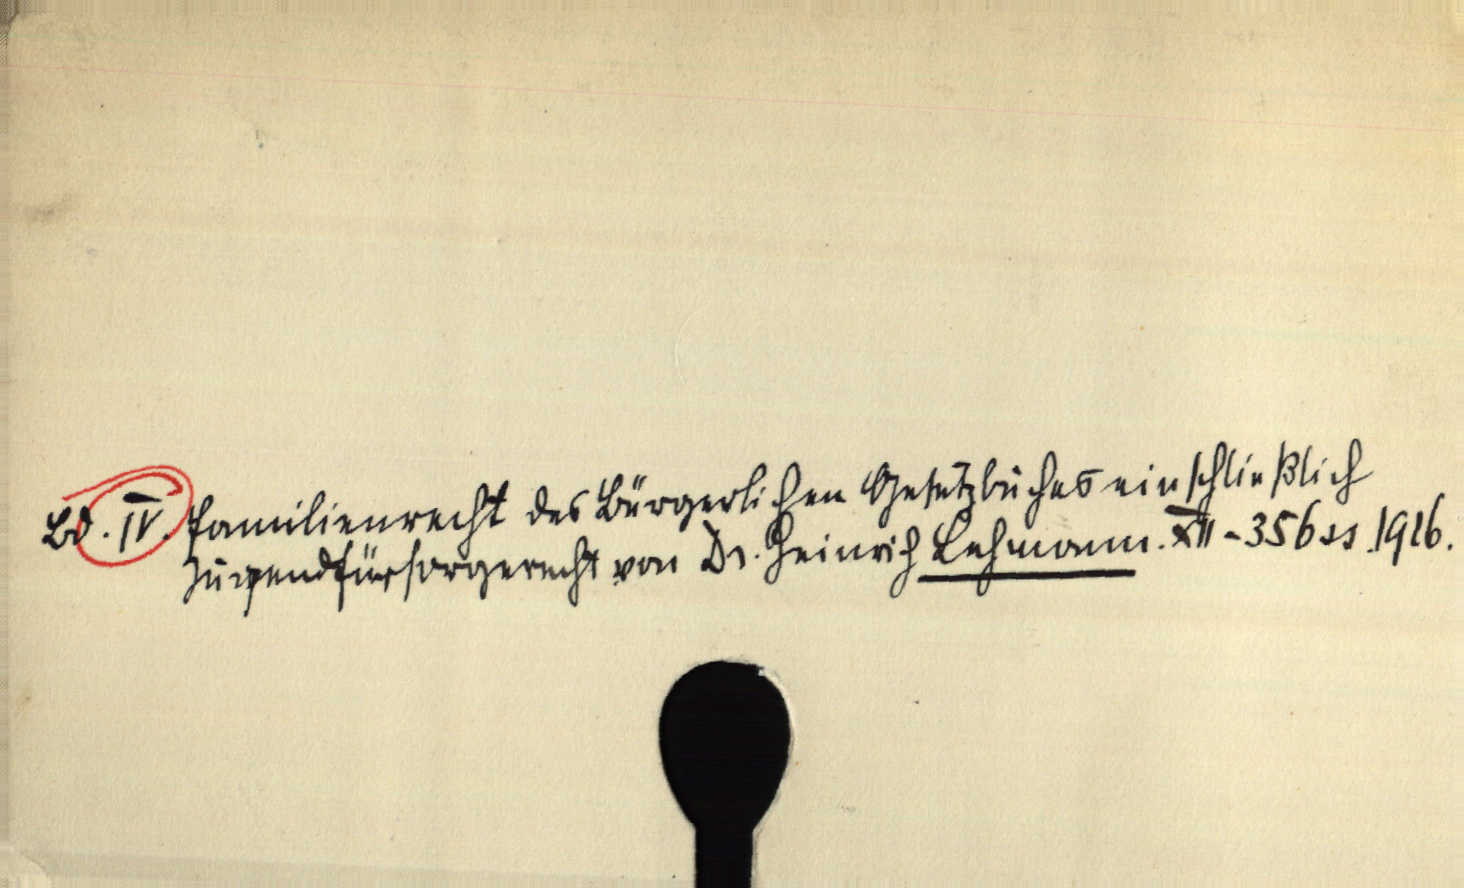 Bd. IV. Familienrecht des Bürgerlichen Gesetzbuches einschließlich
Jugendfürsorgerecht von Dr. Heinrich Lehmann. XII - 356 SS. 1926.